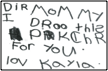 DiR MOM MY
I DROO this
PikChR
FoR YoU.
lov Kayla.